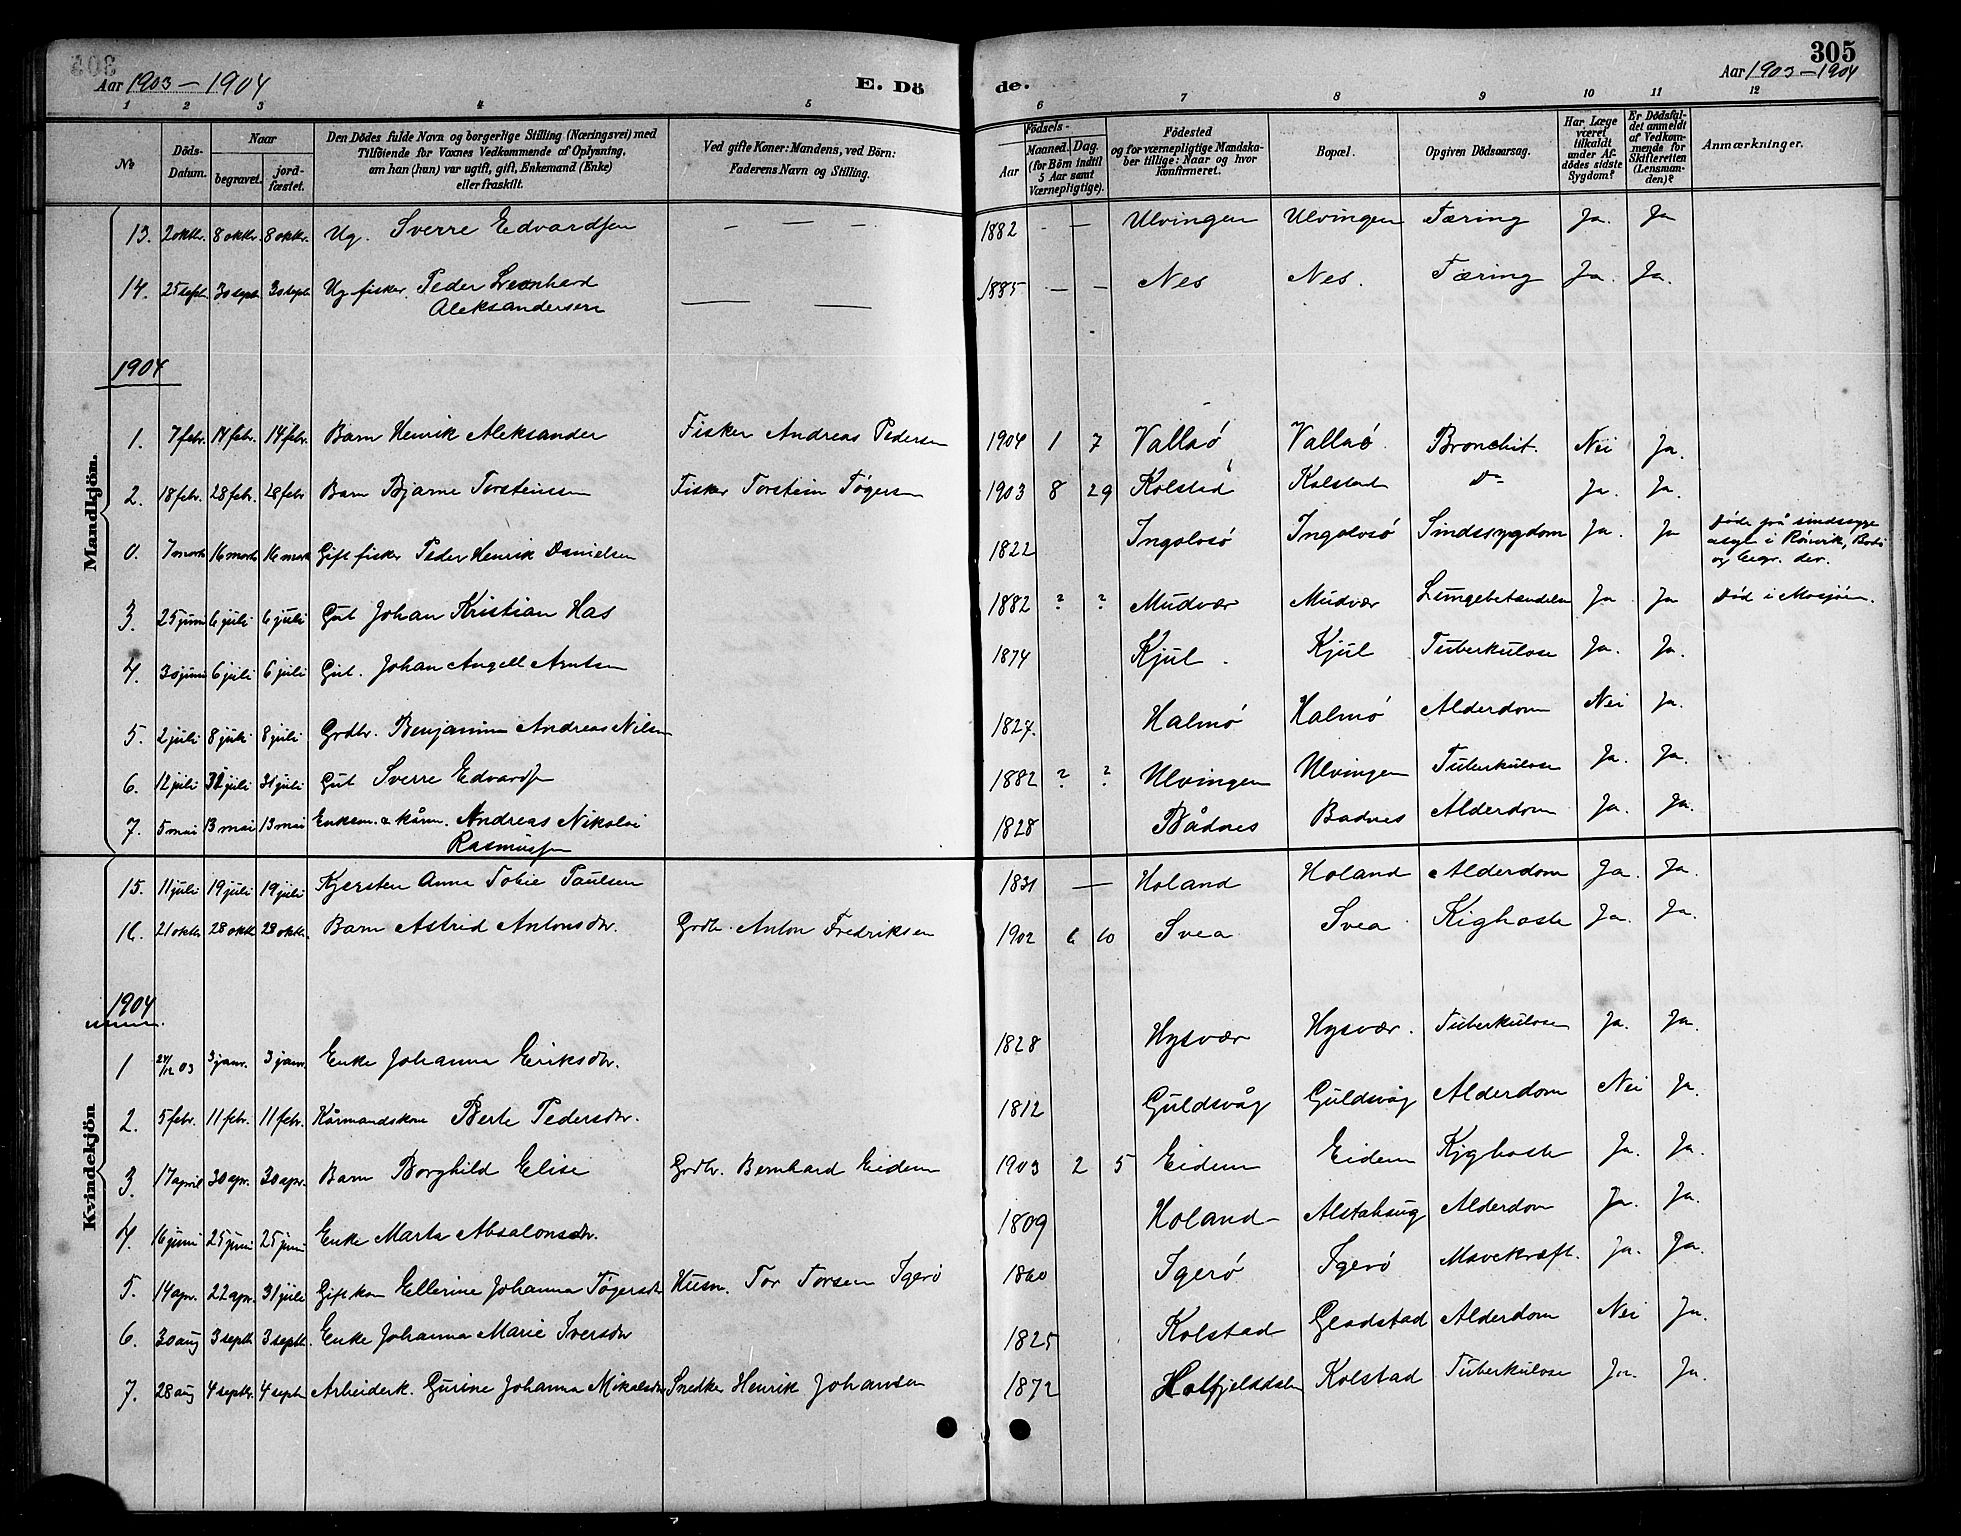 303
305
Aar 1903 – 1904
E. Dö
de.
Aar 1903 – 1904
1 2 3 4 5 6 7 8 9 10 11 12
No
Döds-Datum.
Naar
begravet.
jordfæstet.
Den Dödes fulde Navn og borgerlige Stilling (Næringsvei) med
Tilföiende for Voxnes Vedkommende af Oplysning,
om han (hun) var ugift, gift, Enkemand (Enke)
eller fraskilt.
Ved gifte Koner: Mandens, ved Börn:
Faderens Navn og Stilling.
Födsels-
Aar
Maaned. Dag.
(for Börn indtil
5 Aar samt
Værnepligtige).
Födested
og for værnepligtige Mandska-
ber tillige: Naar og hvor
konfirmeret.
Bopæl.
Opgiven Dödsaarsag.
Har Læge
været
tilkaldt
under Af-
dödes sidste
Sygdom?
Er Dödsfal-
det anmeldt
af Vedkom-
mende for
Skifteretten
(Lensman-
den)?
Anmærkninger.
Mandkjön.
13. 2 oktbr. 8 oktbr. 8 oktbr. Ug. Sverre Edvardsen — — 1882 - — Ulvingen Ulvingen Tæring Ja. Ja
14. 25 sept. 30 sept. 30 sept. Ug fisker. Peder Leonhard
Aleksandersen — — 1885 — — Nes Nes. Tæring Ja. Ja.
1904
1. 7 febr. 14 febr. 14 febr. Barn Henrik Aleksander Fisker Andreas Pedersen 1904 1 7 Vallsö Vallsö. Bronchit. Nei Ja.
2. 18 febr. 28 febr. 28 febr Barn Bjarne Torsteinsen Fisker Torstein Tøgersen 1903 8 29 Kolstad Kolstad Do Ja. Ja.
0. 7 marts 16 marts 16 marts Gift fisker Peder Henrik Danielsen 1822 Ingolvsö Ingolvsö Sindssygdom Ja. Ja Döde på sindssyge
asyl i Rönvik, Bodö
og begr. der.
3. 25 juni 6 juli 6 juli Gut Johan Kristian Has 1882 ? ? Mudvær Mudvær Lungebetændelse Ja Ja Död i Mosjöen.
4. 30 juni 6 juli 6 juli Gut. Johan Angell Arntsen 1874 Kjul. Kjul Tuberkulose Ja. Ja.
5. 2 juli 8 juli 8 juli Grdbr. Benjamin Andreas Nilsen 1827. Halmö Halmö Alderdom Nei Ja.
6. 12 juli 31 juli 31 juli Gut Sverre Edvards 1882 ? ? Ulvingen Ulvingen Tuberkulose Ja. Ja.
7. 5 mai 13 mai 13 mai Enkem. & kårm. Andreas Nikolai
Rasmussen 1828 Bådnes Badnes Alderdom Ja. Ja.
Kvindekjön
15. 11 juli 19 juli 19 juli Kjersten Anna Tobie Paulsen 1831 — Holand Holand Alderdom Ja. Ja.
16. 21 oktbr 28 oktb 28 oktbr. Barn Astrid Antonsdtr. Grdbr. Anton Fredriksen 1902 6 10 Svea Svea Kighoste Ja. Ja.
1904
1 24/12 03 3 janr. 3 janr. Enke Johanna Eriksdtr. 1828 Hysvær Hysvær. Tuberkulose Ja. Ja.
2. 5 febr. 11 febr. 11 febr. Kårmandskone Berte Pedersdtr. 1812 Guldsvåg Guldsvåg Alderdom Nei Ja.
3. 17 april 30 apr. 30 apr. Barn Borghild Elise Grdbr. Bernhard Eidem 1903 2 5 Eidem Eidem Kighoste Ja. Ja.
4. 16 juni 25 juni 25 juni Enke Marta Absalonsdtr. 1809 Holand Alstahaug Alderdom Ja. Ja.
5. 14 apr. 22 apr. 31 juli Gift kone Ellerine Johanna Tøgersdtr Husm. Tor Torsen Igerö 1860 Igerö Igerö Mavekræft. Ja. Ja.
6. 30 aug 3 septb 3 septb. Enke Johanna Marie Iversdtr 1825 Kolstad Gladstad Alderdom Nei Ja.
7. 28 aug 4 septbr. 4 septb Arbeiderk. Gurine Johanna Mikalsdtr Snedker Henrik Johansen 1872 Hatfjelddalen Kolstad Tuberkulose Ja. Ja.